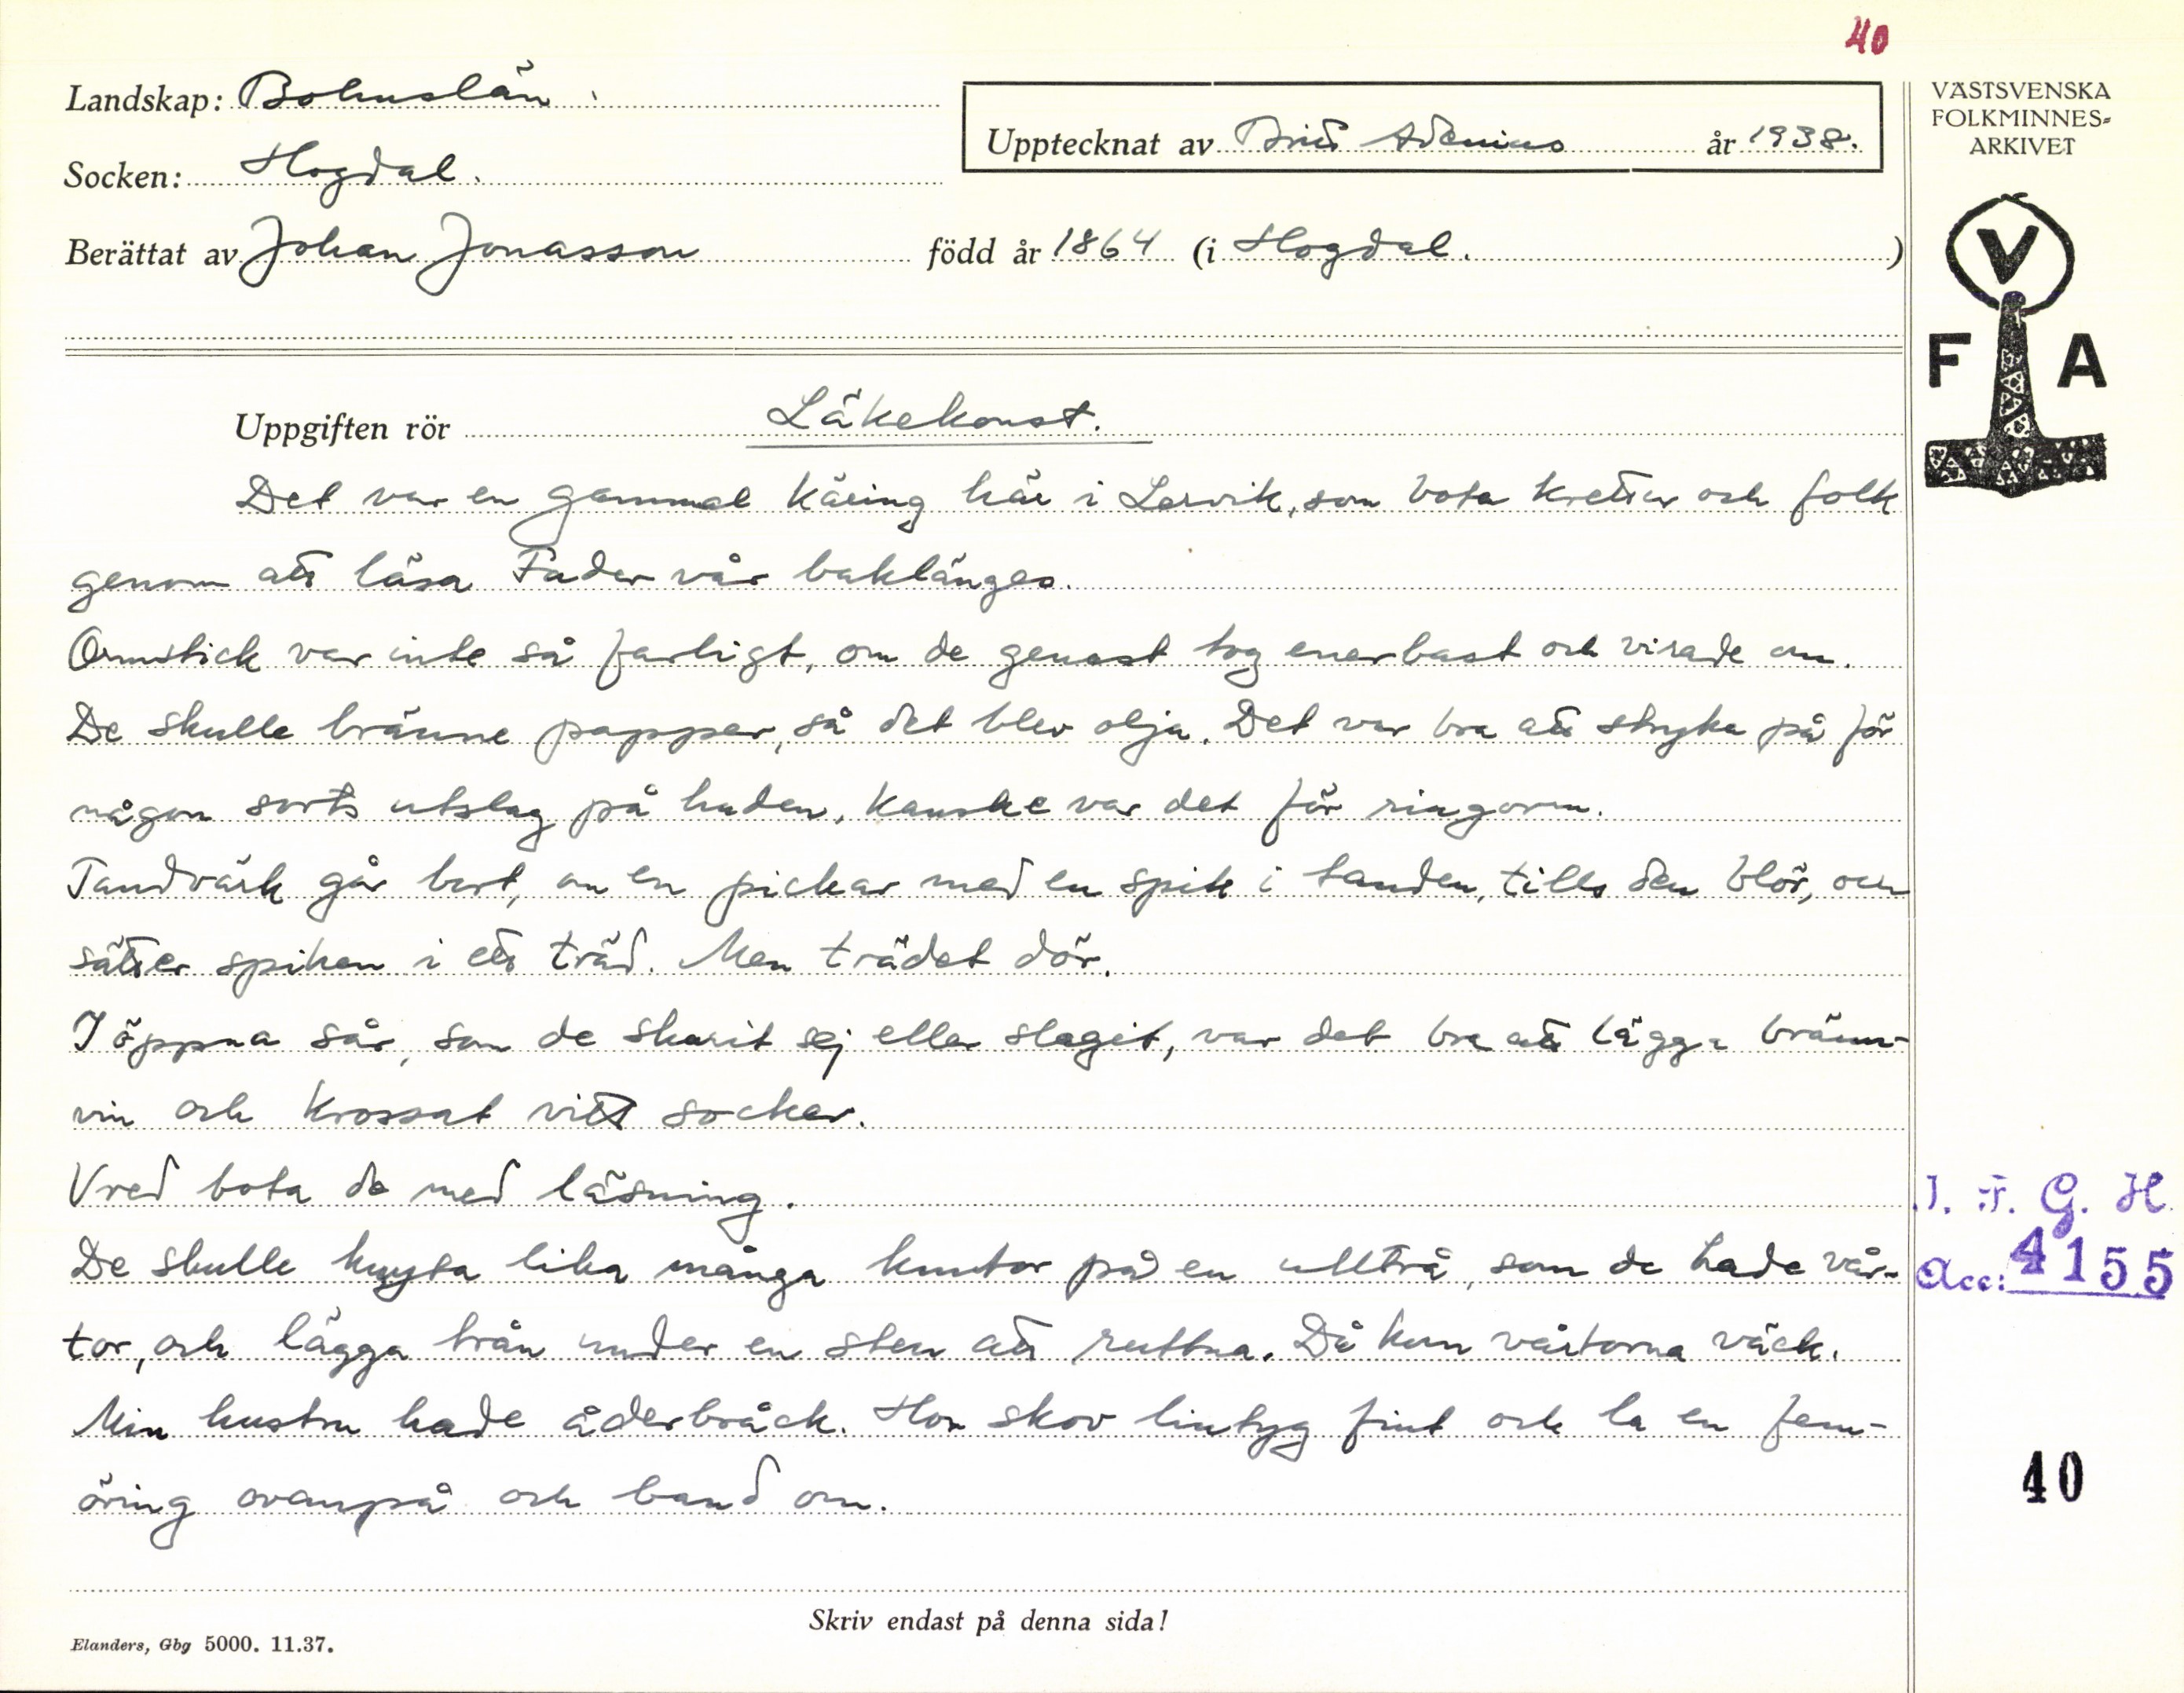 40
Landskap: Bohuslän.
Upptecknat av Brita Adenius år 1938.
VÄSTSVENSKA
FOLKMINNES-
ARKIVET
Socken: Hogdal.
Berättat av Johan Jonasson född år 1864 (i Hogdal.)
V
F A
Uppgiften rör Läkekonst.
Det var en gammal käring här i Lervik, som bota kretur och folk
genom att läsa Fader vår baklänges.
Ormstick var inte så farligt, om de genast tog enerbast och virade om.
De skulle bränne papper, så det blev olja. Det var bra att stryka på för
någon sorts utslag på huden, kanske var det för ringorm.
Tandvärk går bort, om en pickar med en spik i tanden, tills den blör, och
sätter spiken i ett träd. Men trädet dör.
I öppna sår, som de skurit sej eller slaget, var det bra att lägga bränn-
vin och krossat vitt socker.
Vred bota de med läsning.
De skulle knyta lika många knutar på en ulltrå, som de hade vår-
tor, och lägga trån under en sten att ruttna. Då kom vårtorna väck.
Min hustru hade åderbråck. Hon skov lintyg fint och la en fem-
öring ovanpå och band om.
I. F. G. H.
Acc: 4155
40
Skriv endast på denna sida!
Elanders, Gbg 5000. 11.37.